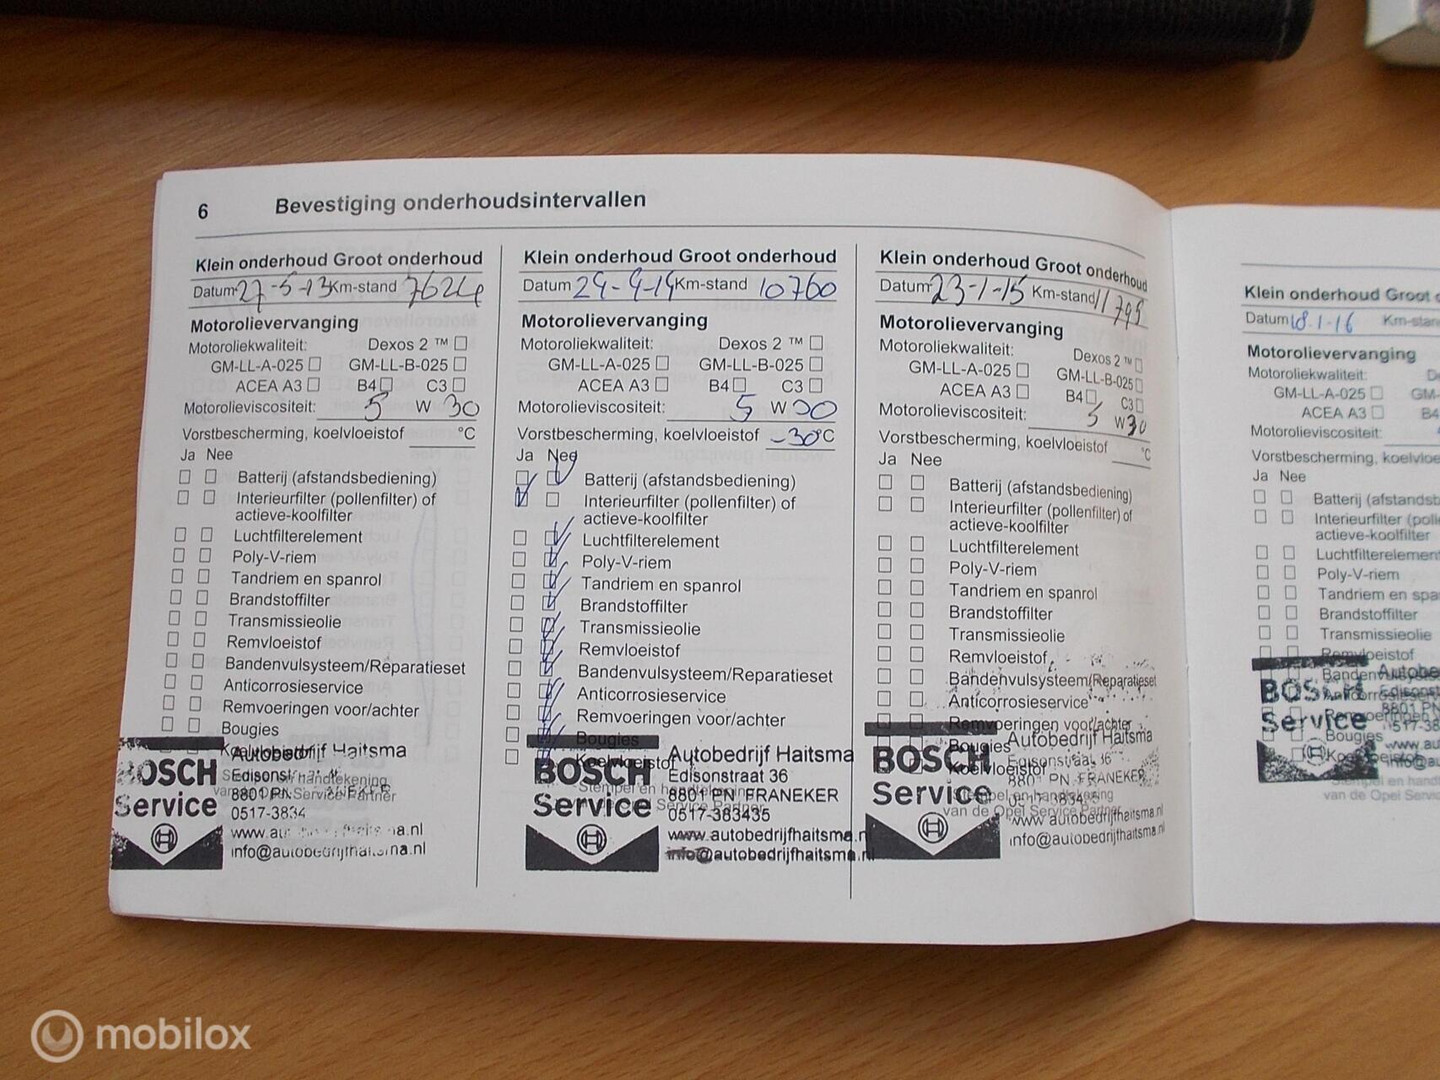 6 Bevestiging onderhoudsintervallen
Klein onderhoud Groot onderhoud
Datum 27-5-13 Km-stand 7624
Motorolievervanging
Motoroliekwaliteit: Dexos 2 ™ ☐
GM-LL-A-025 ☐ GM-LL-B-025 ☐
ACEA A3 ☐ B4 ☐ C3 ☐
Motorolieviscositeit: 5 W 30
Vorstbescherming, koelvloeistof °C
Ja Nee
Batterij (afstandsbediening)
Interieurfilter (pollenfilter) of
actieve-koolfilter
Luchtfilterelement
Poly-V-riem
Tandriem en spanrol
Brandstoffilter
Transmissieolie
Remvloeistof
Bandenvulsysteem/Reparatieset
Anticorrosieservice
Remvoeringen voor/achter
Bougies
Koelvloeistof
BOSCH
Service
Autobedrijf Haitsma
8801 PN
0517-3834
info@autobedrijfhaitsma.nl
Klein onderhoud Groot onderhoud
Datum Km-stand 10760
Motorolievervanging
Motoroliekwaliteit: Dexos 2 ™ ☐
GM-LL-A-025 ☐ GM-LL-B-025 ☐
ACEA A3 ☐ B4 ☐ C3 ☐
Motorolieviscositeit: 5 W 30
Vorstbescherming, koelvloeistof -30°C
Ja Nee
Batterij (afstandsbediening)
Interieurfilter (pollenfilter) of
actieve-koolfilter
Luchtfilterelement
Poly-V-riem
Tandriem en spanrol
Brandstoffilter
Transmissieolie
Remvloeistof
Bandenvulsysteem/Reparatieset
Anticorrosieservice
Remvoeringen voor/achter
Bougies
Koelvloeistof
BOSCH
Service
Autobedrijf Haitsma
Edisonstraat 36
8801 PN FRANEKER
0517-383435
www.autobedrijfhaitsma.nl
info@autobedrijfhaitsma.nl
Klein onderhoud Groot onderhoud
Datum 23-1-15 Km-stand 11795
Motorolievervanging
Motoroliekwaliteit: Dexos 2 ™ ☐
GM-LL-A-025 ☐ GM-LL-B-025 ☐
ACEA A3 ☐ B4 ☐ C3 ☐
Motorolieviscositeit: 5 W 30
Vorstbescherming, koelvloeistof °C
Ja Nee
Batterij (afstandsbediening)
Interieurfilter (pollenfilter) of
actieve-koolfilter
Luchtfilterelement
Poly-V-riem
Tandriem en spanrol
Brandstoffilter
Transmissieolie
Remvloeistof
Bandenvulsysteem/Reparatieset
Anticorrosieservice
Remvoeringen voor/achter
Bougies
Koelvloeistof
Stempel en handtekening
van de Opel Service Partner
BOSCH
Service
Autobedrijf Haitsma
Edisonstraat 36
PN FRANEKER
www.autobedrijfhaitsma.nl
info@autobedrijfhaitsma.nl
Klein onderhoud Groot
Datum 18-1-16 Km-stan
Motorolievervanging
Motoroliekwaliteit:
GM-LL-A-025 ☐ GM-
ACEA A3 ☐ B4
Motorolieviscositeit:
Vorstbescherming, koelvloe
Ja Nee
Batterij (afstandsb
Interieurfilter (polle
actieve-koolfilter
Luchtfilterelemen
Poly-V-riem
Tandriem en spa
Brandstoffilter
Transmissieolie
Remvloeistof
Bougies
van de Opel Servic
BOSCH
Service
mobilox